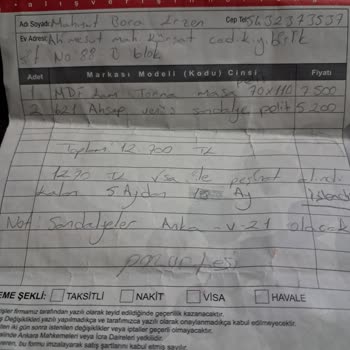 a l ı ş v e r i ş
Adı Soyadı: Mahmut Bora Erzen Cep Tel: 5632373537
Ev Adresi: Ahi mesut mah. Kürşat cad.
No 88 D blok
Adet Markası Modeli (Kodu) Cinsi Fiyatı
1 MDF lam Torna masa 70x110 7.500
2 621 Ahşap sandalye 5.200
Toplam 12.700 TL
1270 TL vsa ile peşinat alındı
kalan 5. Aydan Ay
Not Sandalyeler Anka - V-21 olacak
pazartesi
EME ŞEKLİ: TAKSİTLİ NAKİT VİSA HAVALE
işler firmamız tarafından yazılı olarak teyid edildiğinde geçerlilik kazanacaktır.
Değişiklikleri yazılı yapılmadıkça ve tarafımızca yazılı olarak onaylanmadıkça kabul edilmeyecektir.
ten iki gün sonra istenilen değişiklikler veya iptaller geçerli olmayacaktır.
alinde Ankara Mahkemeleri veya İcra Daireleri yetkilidir.
eren, bu formu imzalayarak satış şartlarını kabul etmiş sayılır.